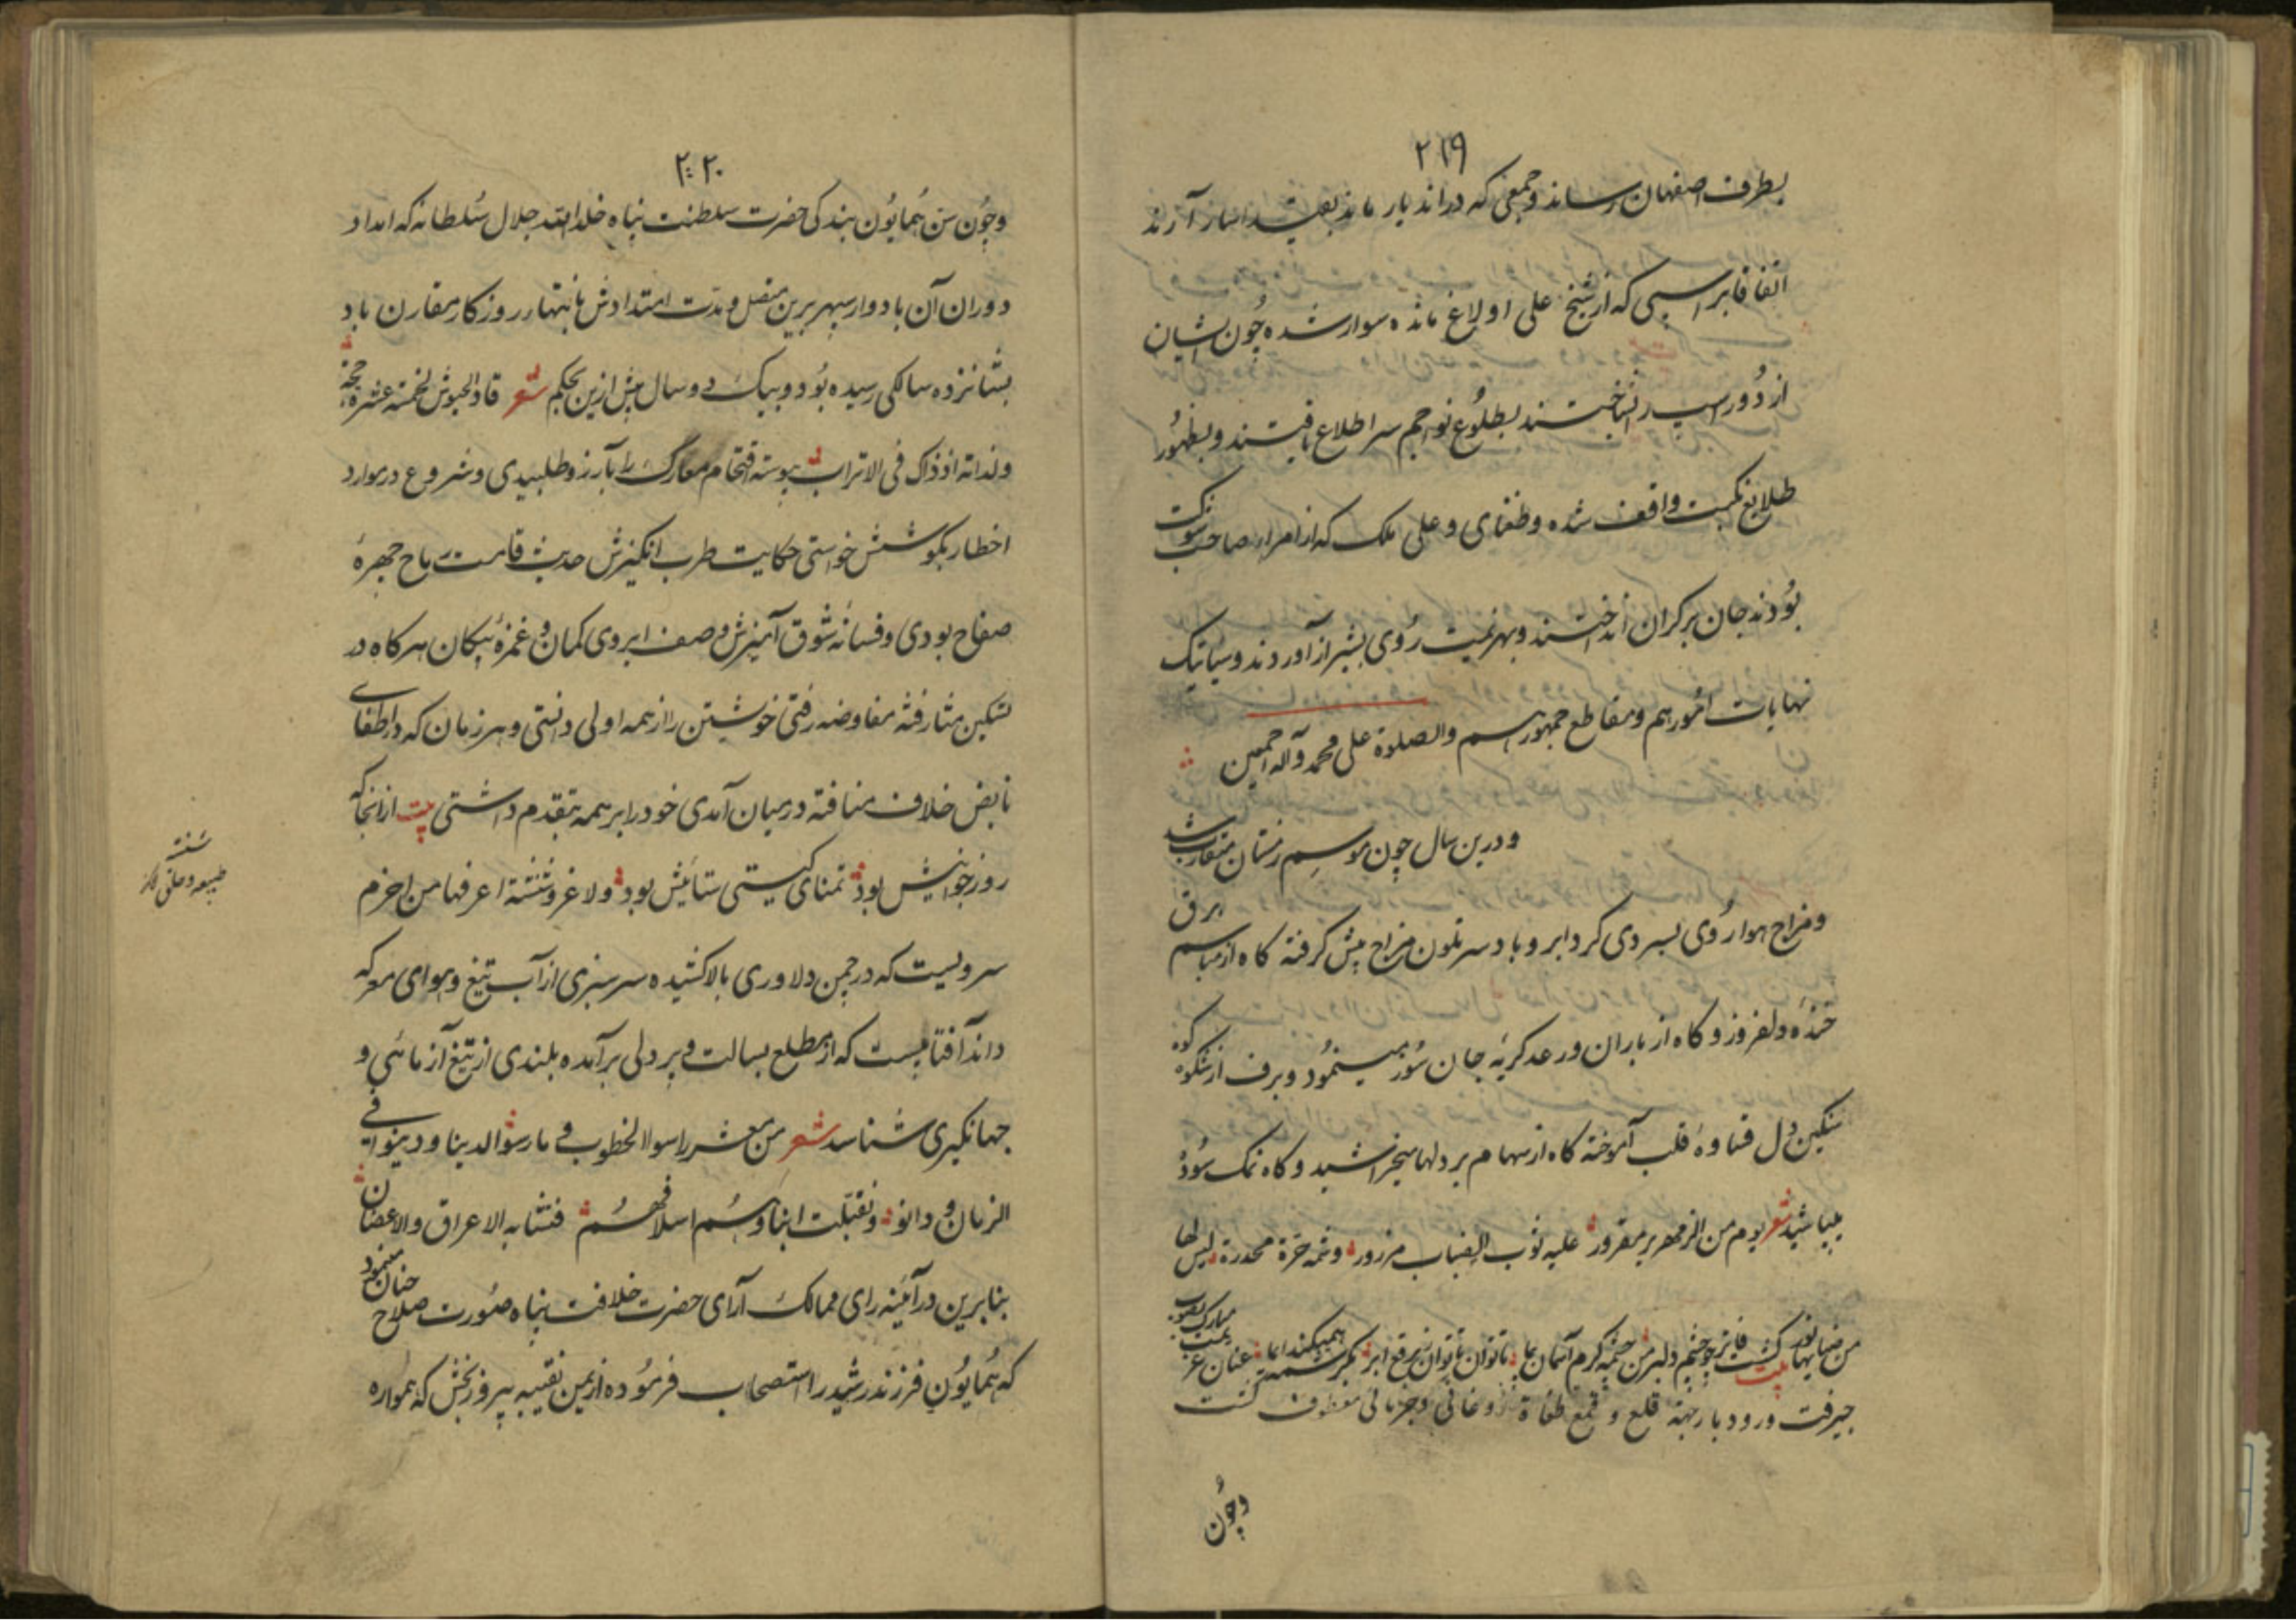 ۲۱۹
بطرف اصفهان رساند و جمعی که در اندیار ماند بقید اسار آرند
اتفاقا بر اسپی که از شیخ علی اولاغ مانده سوار شده چون ایشان
از دور اسپ را شناختند بطلوع نواجم سر اطلاع یافتند و بظهور
طلایع نکبت واقف شده و طغای و علی ملک که از امراء صاحب شوکت
بودند جان بر کران انداختند و بهزیمت روی بشیراز آوردند وسیاتیک
نهایات امورهم و مقاطع جمهورهم والصلوة علی محمد وآله اجمعین
و درین سال چون موسم زمستان متقارب شد
و مزاج هوا روی بسردی کرد ابر و باد سر تلون مزاج پیش گرفته کاه از مباسم برق
خنده دلفروز و کاه از باران و رعد کریه جان سوز مینمود و برف از شکوه کوه
سنکین دل قساوة قلب آموخته کاه از سهام بر دلها میخراشید و کاه نمک سوده
میپاشید شعر یوم من الزمهریر مقرور علیه ثوب الضباب مزرور وشمه حرة مخدرة لیس لها
من ضیائها نور بیت کشت فاتر چو چشم دلبر من چشمه کرم آسمان پیمای ناتوان ناتوان ز برقع ابر بکرشمه همیکند ایما عنان عز مبارک بصوب
جیرفت و رودبار جهة قلع و قمع طغاة اوغانی و جرمائی معطوف کشت
وچون
۲۲۰
وچون سن همایون بندکی حضرت سلطنت پناه خلد الله جلال سلطانه که امداد
دوران آن بادوار سپهر برین متصل و مدت امتدادش بانتهاء روزکار مقارن باد
بشانزده سالکی رسیده بود و بیک دو سال پیش ازین بحکم شعر قاد الجیوش لخمسه عشره حجة
ولداته اذ ذاک فی الاتراب پیوسته اقتحام معارک را بآرزو طلبیدی و شروع در موارد
اخطار بکوشش خواستی حکایت طرب انکیزش حدیث قامت رماح چهرهٔ
صفاح بودی و فسانهٔ شوق آمیزش وصف ابروی کمان و غمزهٔ پیکان هر کاه در
تسکین مفاوضه رفتی خویشتن را از همه اولی دانستی و هر زمان که در اطفای
خلاف در میان آمدی خود را بر همه متقدم داشتی بیت از انجا که
روز جوانیش بود تمنای کیتی ستانیش بود ولا غرو شنشنة اعرفها من اخزم
سرویست که در چمن دلاوری بالا کشیده سر سبزی از آب تیغ و هوای معرکه
داند آفتابیست که از مطلع بسالت و پر دلی برآمده بلندی از تیغ آزمائی و
جهانکیری شناسد شعر من معشر راسوا الخطوب ومارسوا الدنیا ودینوا فی
الزمان ودانوا وتقبلت ابناؤهم اسلافهم فتشابه الاعراق والاغصان
بنابرین در آئینه رای ممالک آرای حضرت خلافت پناه صورت صلاح چنان مینمود
که همایون فرزند رشید را استصحاب فرموده از یمن نقیبه پیروز بخش که همواره
طبیعه و خلق